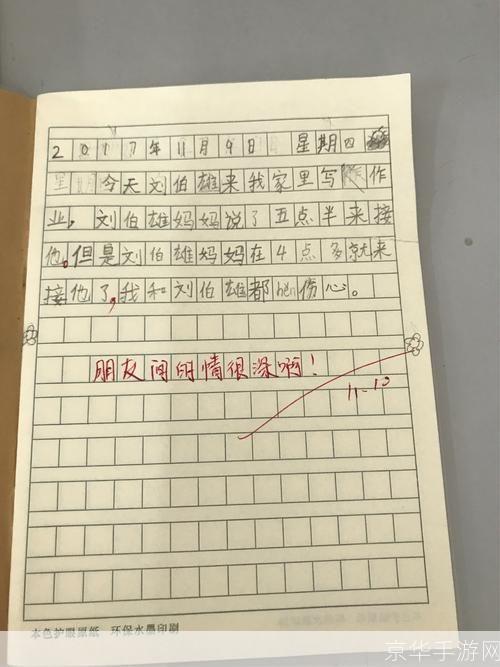 2017年11月9日 星期四
今天刘伯雄来我家里写作
业，刘伯雄妈妈说了五点半来接
他。但是刘伯雄妈妈在4点多就来
接他了，我和刘伯雄都hěn伤心。
朋友间的情很深啊！
11-10
本色护眼原纸 环保水墨印刷
京华手游网